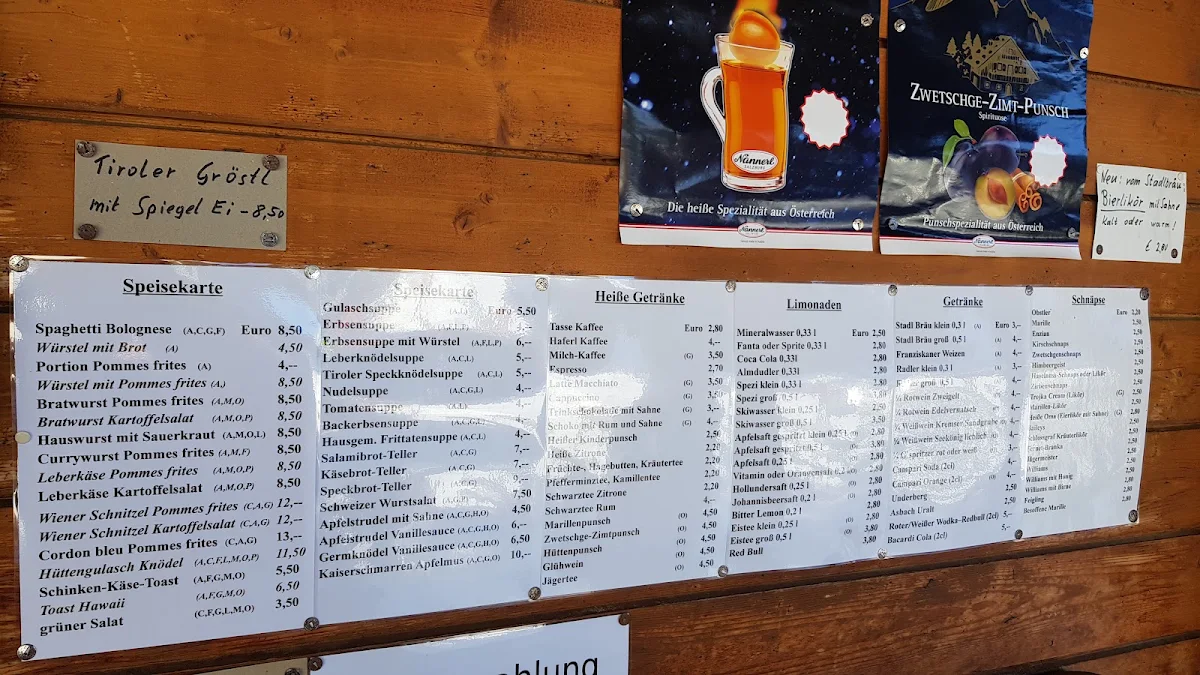 Tiroler Gröstl
mit Spiegel Ei - 8,50
Nannerl
SALZBURG
Die heiße Spezialität aus Österreich
Nannerl
ZWETSCHGE-ZIMT-PUNSCH
Spirituose
Punschspezialität aus Österreich
Nannerl
Neu: vom Stadlbräu
Bierlikör mit Sahne
kalt oder warm!
€ 2,80
Speisekarte
Spaghetti Bolognese (A,C,G,F) Euro 8,50
Würstel mit Brot (A) 4,50
Portion Pommes frites (A) 4,--
Würstel mit Pommes frites (A,) 8,50
Bratwurst Pommes frites (A,M,O) 8,50
Bratwurst Kartoffelsalat (A,M,O,P) 8,50
Hauswurst mit Sauerkraut (A,M,O,L) 8,50
Currywurst Pommes frites (A,M,F) 8,50
Leberkäse Pommes frites (A,M,O,P) 8,50
Leberkäse Kartoffelsalat (A,M,O,P) 8,50
Wiener Schnitzel Pommes frites (C,A,G) 12,--
Wiener Schnitzel Kartoffelsalat (C,A,G) 12,--
Cordon bleu Pommes frites (C,A,G) 13,--
Hüttengulasch Knödel (A,C,F,L,M,O,P) 11,50
Schinken-Käse-Toast (A,F,G,M,O) 5,50
Toast Hawaii (A,F,G,M,O) 6,50
grüner Salat (C,F,G,L,M,O) 3,50
Speisekarte
Gulaschsuppe (A,L) Euro 5,50
Erbsensuppe
Erbsensuppe mit Würstel (A,F,L,P) 6,--
Leberknödelsuppe (A,C,L) 5,--
Tiroler Speckknödelsuppe (A,C,L) 5,--
Nudelsuppe (A,C,G,L) 4,--
Tomatensuppe 4,--
Backerbsensuppe (A,C,G,L) 4,--
Hausgem. Frittatensuppe (A,C,L) 4,--
Salamibrot-Teller (A,C,G) 7,--
Käsebrot-Teller 7,--
Speckbrot-Teller
Schweizer Wurstsalat (A,G,P) 7,50
Apfelstrudel mit Sahne (A,C,G,H,O) 4,50
Apfelstrudel Vanillesauce (A,C,G,H,O) 6,--
Germknödel Vanillesauce (A,C,G,H,O) 6,50
Kaiserschmarren Apfelmus (A,C,G,O) 10,--
Heiße Getränke
Tasse Kaffee Euro 2,80
Haferl Kaffee 4,--
Milch-Kaffee (G) 3,50
Espresso 2,70
Latte Macchiato (G) 3,50
Cappuccino (G) 3,50
Trinkschokolade mit Sahne (G) 3,--
Schoko mit Rum und Sahne (G) 4,--
Heißer Kinderpunsch 2,50
Heiße Zitrone 2,20
Früchte-, Hagebutten, Kräutertee 2,20
Pfefferminztee, Kamillentee 2,20
Schwarztee Zitrone
Schwarztee Rum 4,--
Marillenpunsch (O) 4,50
Zwetschge-Zimtpunsch (O) 4,50
Hüttenpunsch (O) 4,50
Glühwein (O) 4,50
Jägertee (O) 4,50
Limonaden
Mineralwasser 0,33 l Euro 2,50
Fanta oder Sprite 0,33 l 2,80
Coca Cola 0,33l 2,80
Almdudler 0,33l 2,80
Spezi klein 0,33 l 2,80
Spezi groß 0,5 l
Skiwasser klein 0,25 l
Skiwasser groß 0,5 l
Apfelsaft gespritzt klein 0,25 l
Apfelsaft gespritzt 0,5 l
Apfelsaft 0,25 l
Vitamin oder Orangensaft
Hollundersaft 0,25 l 2,80
Johannisbeersaft 0,2 l 2,80
Bitter Lemon 0,2 l 2,80
Eistee klein 0,25 l 2,80
Eistee groß 0,5 l 3,80
Red Bull 3,80
Getränke
Stadl Bräu klein 0,3 l (A) Euro 3,--
Stadl Bräu groß 0,5 l (A) 4,--
Franziskaner Weizen (A) 4,--
Radler klein 0,3 l (A) 3,--
groß 0,5 l
Rotwein Zweigelt
Rotwein Edelvernatsch
Weißwein Kremser Sandgrube
Weißwein Seekönig lieblich
G'spritzer rot oder weiß
Campari Soda (2cl)
Campari Orange (2cl)
Underberg
Asbach Uralt
Roter/Weißer Wodka-Redbull (2cl) 5,--
Bacardi Cola (2cl) 5,--
Schnäpse
Obstler Euro 2,20
Marille
Enzian
Kirschschnaps
Zwetschgenschnaps
Himbeergeist
Haselnuss-Schnaps oder Likör
Zirbenschnaps
Trojka Cream (Likör) (G)
Marillen-Likör
Heiße Oma (Eierlikör mit Sahne) (G)
Baileys
Jägermeister
Williams
Williams mit Honig
Williams mit Birne
Feigling
Besoffene Marille